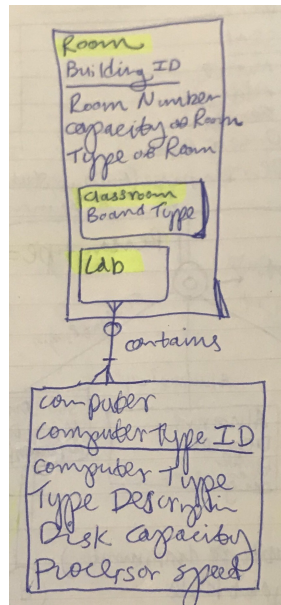 Room
Building ID
Room Number
capacity of Room
Type of Room
Classroom
Board Type
Lab
contains
computer
computer type ID
computer Type
Type Descryptin
Disk capacity
Processor speed